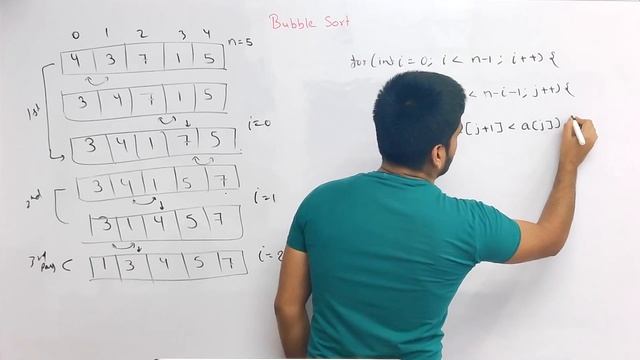 Bubble Sort
0 1 2 3 4
4 3 7 1 5 n=5
1st
3 4 7 1 5
3 4 1 7 5 i=0
3 4 1 5 7
2nd
3 1 4 5 7 i=1
3rd pass
1 3 4 5 7 i=2
for(int i = 0; i < n-1; i++) {
< n-i-1; j++) {
[j+1] < a[j])